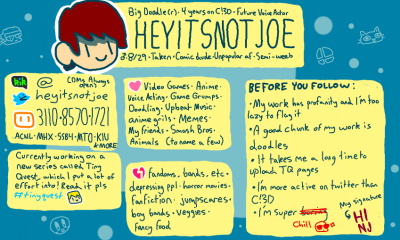 Big Doodle(r) · 4 years on C!3D · Future Voice Actor
HEYITSNOTJOE
8/29 · Taken · Comic dude · Unpopular af · Semi-weeb
@
COMs Always open!
heyitsnotjoe
3110-8570-1721
ACNL · MHX · SSB4 · MTO · KIU
+MORE
Currently working on a
new series called Tiny
Quest, which I put a lot of
effort into! Read it pls
#tinyquest
Video Games · Anime ·
Voice Acting · Game Grumps ·
Doodling · Upbeat Music ·
anime grils · Memes ·
My friends · Smash Bros ·
Animals (to name a few)
fandoms, bands, etc ·
depressing ppl · horror movies ·
fanfiction · jumpscares ·
boy bands · veggies ·
fancy food
BEFORE YOU FOLLOW:
· My work has profanity and I'm too
lazy to flag it
· A good chunk of my work is
doodles
· It takes me a long time to
upload TQ pages
· I'm more active on twitter than
C!3D
· I'm super boring
Chill
My signature
HI
NJ